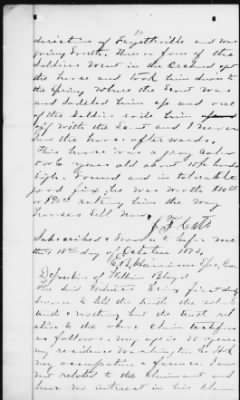 11
direction of Fayetteville and was
going South. Three or four of the
Soldiers went in the Orchard got
the horse and took him down to
the Spring where the Scout was
and Saddled him up and one
of the Soldiers rode him
off with the Scout and I never
saw the horse afterwards.
This horse was a gray horse
5 or 6 years old about 15½ hands
high. Formed and in tolerable
good fix; he was worth
rating him the way
horses Sell Now.
J. F. Cato
Subscribed & Sworn to before me
this 18th day of October 1873,
Harrison Spec. Com.
Deposition of William Bloyd
The said witness being first duly
Sworn to tell the truth the whole
truth & nothing but the truth rel
ative to the above Claim testifies
as follows. My age is 35 years
my residence Washington Co Ark
my occupation a farmer. I am
not related to the Claimant and
have no interest in his Claim